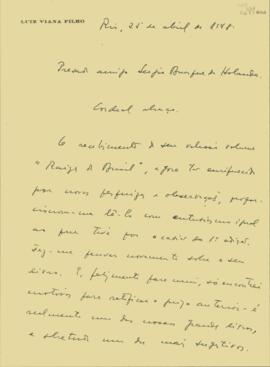 LUIZ VIANA FILHO
Rio, 25 de abril de 1948.
Prezado amigo Sergio Buarque de Holanda.
Cordial abraço.
O recebimento do seu valioso volume
"Raizes do Brasil", agora tão enriquecido
por novas pesquisas e observações, propor-
cionou-me lê-lo com entusiasmo igual
ao que tive por ocasião da 1ª edição.
Fez-me pensar novamente sobre o seu
livro. E, felizmente para mim, só encontrei
motivos para ratificar o juizo anterior - é
realmente um dos nossos grandes livros,
e sobretudo um dos mais sugestivos.